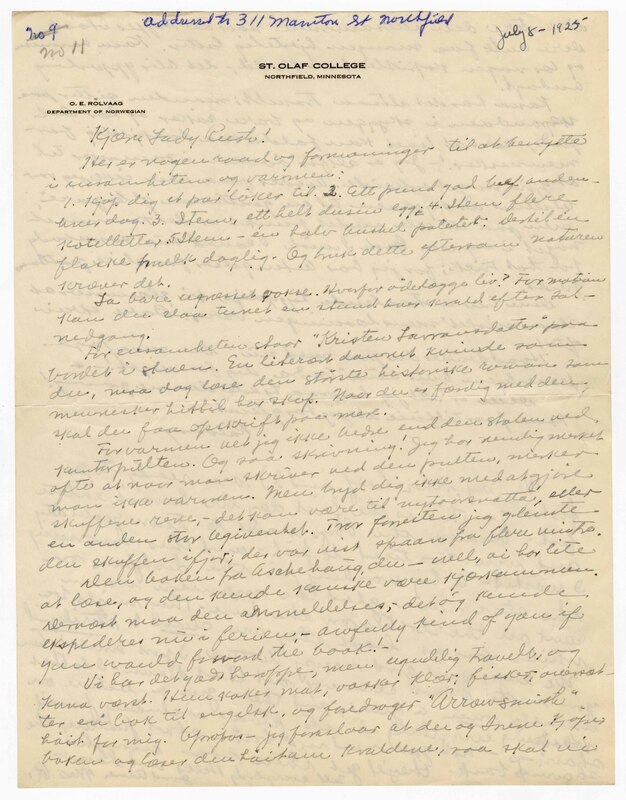 No 9
no 11
address to 311 Manitou St Northfield
July 8 - 1925
ST. OLAF COLLEGE
NORTHFIELD, MINNESOTA
O. E. RÖLVAAG
DEPARTMENT OF NORWEGIAN
Kjære Lady
Her er nogen raad og formaninger til at benytte
i ensomheten og varmen:
1. Kjøp dig et par bøker til. 2. Ett pund god beef anden-
hver dag. 3. Item, ett helt dusin egg. 4. Item flere
koteletter. 5 Item - en halv bushel poteter. Dertil en
flaske melk daglig. Og bruk dette eftersom naturen
kræver det.
La bare ugræsset vokse. Hvorfor ødelægge liv? For motion
kan du slaa tunet en stund hver kveld efter sol-
nedgang.
For ensomheten staar "Kristen Lavransdatter" paa
bordet i stuen. En literært dannet kvinde som
du, maa dog læse den største historiske roman som
mennesker hittil har skapt. Naar du er færdig med den,
skal du faa opskrift paa mere.
For varmen vet jeg ikke bedre end den stolen ved
kontorpulten. Og saa skrivning! Jeg har nemlig merket
ofte at naar man skriver ved den pulten, merker
man ikke varmen. Men bryd dig ikke med at gjøre
skuffene rene, - det kan være til nytaarsnatta, eller
en anden stor begivenhet. Tror forresten jeg glemte
den skuffen ifjor; der var vist spaan fra flere vintre.
Den boken fra Aschehoug, du - well, vi har lite
at læse, og den kunde kanske være kjærkommen.
Dernæst maa den anmeldelses, - det og kunde
ekspederes nu i ferien, - awfully kind of you if
you would forward the book! -
Vi har det godt heroppe, men uendelig travelt, og
kona værst. Hun koker mat, vasker klær, fisker, oversæt-
ter en bok til engelsk, og foredrager "Arrowsmith"
høit for mig. Apropos - jeg foreslaar at du og Irene kjøper
boken og læser den høit om kveldene, saa skal vi